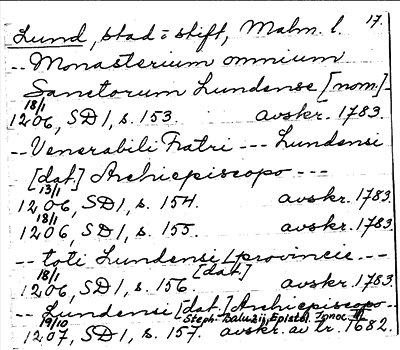 17.
Lund, stad o stift, Malm. l.
-- Monasterium omnium
Sanctorum Lundense [nom.] -
18/1
1206, SD 1, s. 153. avskr. 1783.
-- Venerabili Fratri --- Lundensi
[dat.] Archiepiscopo ---
13/1
1206, SD 1, s. 154. avskr. 1783.
18/1
1206, SD 1, s. 155. avskr. 1783.
-- toti Lundensi provincie ---
[dat.]
18/1
1206, SD 1, s. 156. avskr. 1783.
-- Lundensi [dat.] Archiepiscopo --
Steph. Baluzij, Epistol. Innoc.
19/10
1207, SD 1, s. 157. avskr. av tr. 1682.